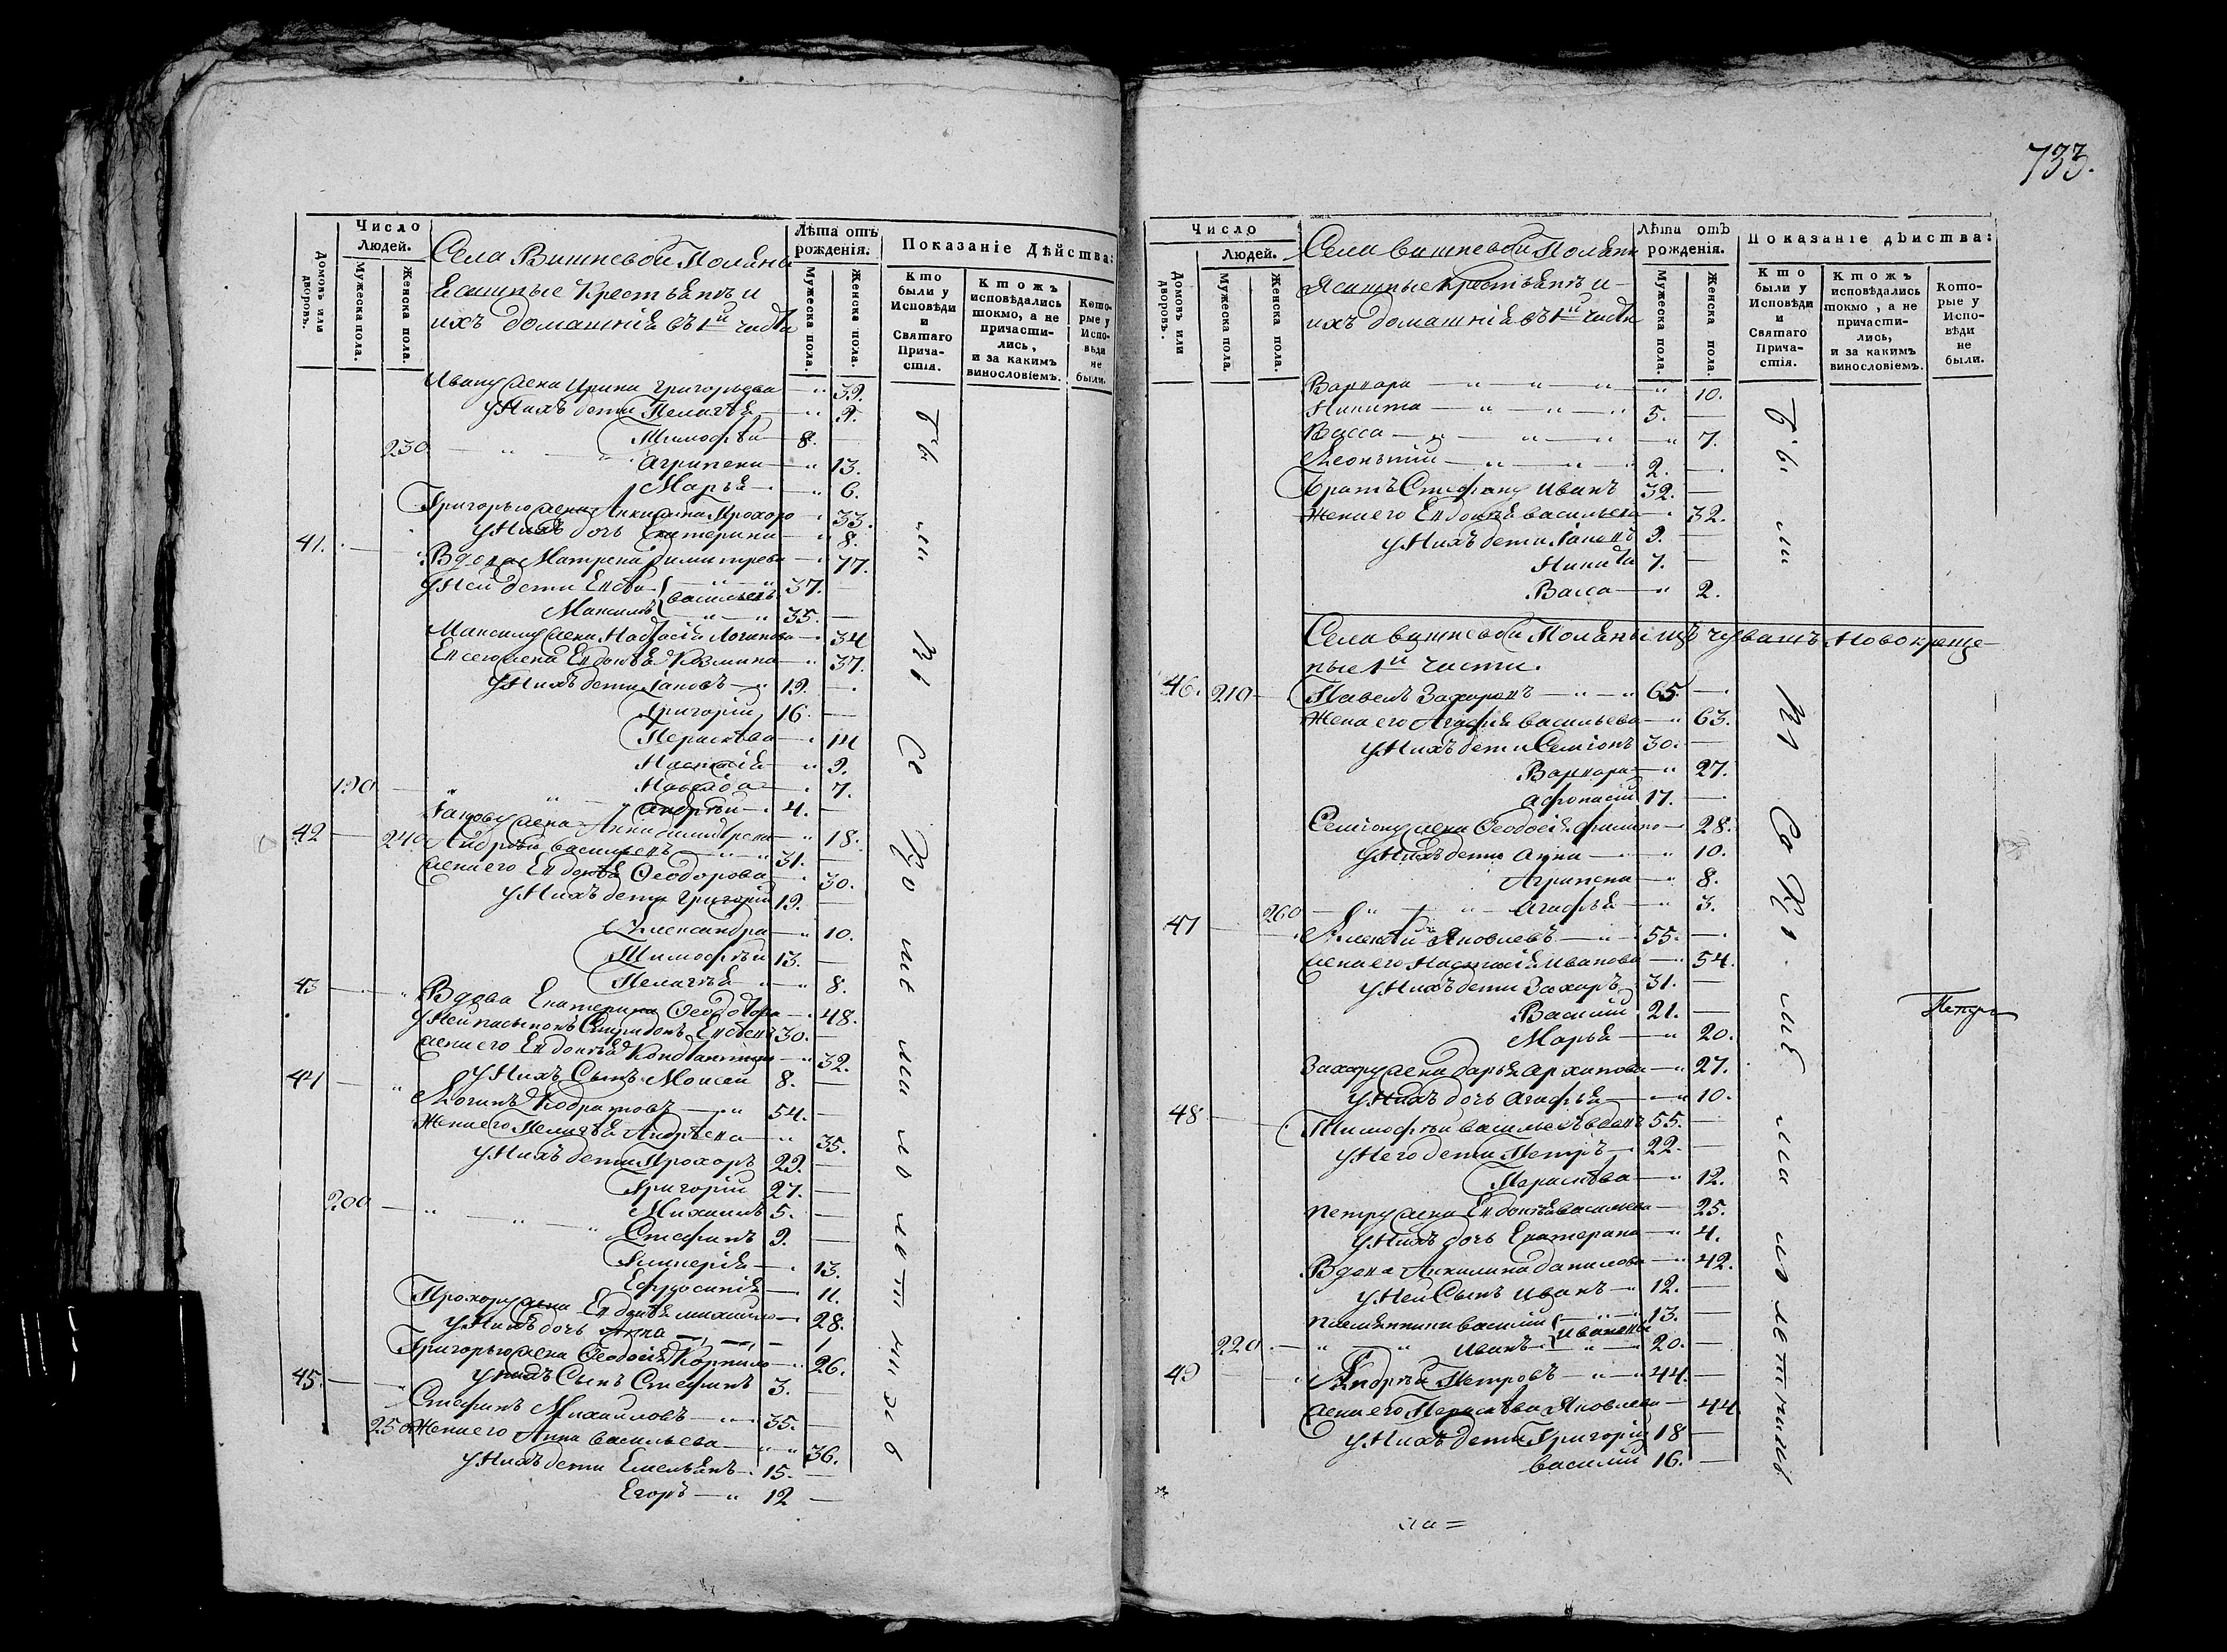 Число
Людей.
Домовъ или дворовъ.
Мужеска пола.
Женска пола.
Села Вишневой Поляны
Ясашные Крестьянъ и
ихъ домашнія въ 1й части
Лѣта отъ рожденія.
Мужеска пола.
Женска пола.
Показаніе Дѣйства:
Кто были у Исповѣди и Святаго Причастія.
Ктожъ исповѣдались токмо, а не причастились, и за какимъ винословіемъ.
Которые у Исповѣди не были.
Ивану жена Ирина Григорьева — 39.
У нихъ дети Пелагѣя —
Тимофѣй — 8. —
230. Агрипена — 13.
Марья — 6.
Григорью жена Акилина Прохоро — 33.
У нихъ дочь Екатерина — 8.
41. Вдова Матрена Димитрева — 77.
У ней дети Евсѣй — 37. —
Василевы
Максимъ — 35. —
Максиму жена Настасія Логинова — 34
Евсею жена Евдокѣя Козмина — 37.
У нихъ дети Іаковъ — 19. —
Григорій 16. —
Пераскѣва — 14
Настасія — 9.
— 7.
190 Андрѣй — 4. —
Іакову жена Анна Димитрева — 18.
42 240 Андрѣй Василевъ — 31. —
жена его Евдокѣя Ѳеодорова — 30.
У нихъ дети Григорій 12. —
Александра — 10.
Тимофѣй 13. —
Пелагѣя — 8.
43 Вдова Екатерина Ѳеодотова — 48.
У ней пасынокъ Спиридонъ Евсѣевъ 30. —
жена его Евдокѣя Константинова — 32.
У нихъ сынъ Моисей 8. —
44 Логинъ Кодратовъ — 54. —
Жена его Пелагѣя Андрѣева — 35.
У нихъ дети Прохоръ 29. —
Григорій 27. —
200 Михаилъ 5. —
Стефанъ 9. —
Гликерія — 13.
Ефросинія — 11.
Прохору жена Евдокѣя Михайло — 28.
У нихъ дочь Анна — 1
Григорью жена Ѳеодосія Корнило — 26.
У нихъ сынъ Стефанъ 3. —
45. Стефанъ Михаиловъ — 35. —
250 Жена его Анна Васильева — 36.
У нихъ дети Емельянъ — 15. —
Егоръ — 12 —
733.
Число
Людей.
Домовъ или дворовъ.
Мужеска пола.
Женска пола.
Села Вишневой Поляны
Ясашные Крестьянъ и
ихъ домашнія въ 1й части
Лѣта отъ рожденія.
Мужеска пола.
Женска пола.
Показаніе дѣйства:
Кто были у Исповѣди и Святаго Причастія.
Ктожъ исповѣдались токмо, а не причастились, и за какимъ винословіемъ.
Которые у Исповѣди не были.
Варвара — 10.
Никита — 5. —
Васса — 7.
Леонтій — 2. —
Братъ Стефану Иванъ 32. —
Жена его Евдокѣя Васильева — 32.
У нихъ дети Іаковъ 9. —
Никита 7. —
Васса — 2.
Села Вишневой Поляны изъ чувашъ Новокреще-
ные 1й части.
46. 210 Павелъ Захаровъ — 65. —
Жена его Агафія Васильева — 63.
У нихъ дети Семіонъ 30. —
Варвара — 27.
Афонасій 17. —
Семіону жена Ѳеодосія Филипо — 28.
У нихъ дети Анна — 10.
Агрипена — 8.
260 Агафья — 3.
47 Алексѣй Яковлевъ — 55. —
жена его Настасія Иванова — 54.
У нихъ дети Захаръ 31. —
Василій 21. —
Марья — 20.
Захару жена Дарья Архипова — 27.
У нихъ дочь Агафья — 10.
48 Тимофѣй Василье 55. —
У него дети Петръ — 22. —
Пераскѣва — 12.
Петру жена Евдокѣя Васильева — 25.
У нихъ дочь Екатерина — 4.
Вдова Акилина Данилова — 42.
У ней сынъ Иванъ — 12. —
племянники Василій — 13. —
Ивановы
220 Иванъ — 20. —
49 Андрѣй Петровъ — 44. —
жена его Пераскѣва Яковлева — 44
У нихъ дети Григорій 18 —
Василій 16. —